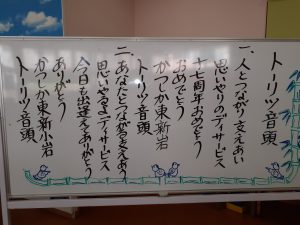 トーリツ音頭
一、人とつながり支えあい
思いやりのデイサービス
十七周年おめでとう
おめでとう
かつしか東新岩
トーリツ音頭
二、あなたとつながる支えあう
思いやるデイサービス
今日も出逢えてありがとう
ありがとう
かつしか東新小岩
トーリツ音頭